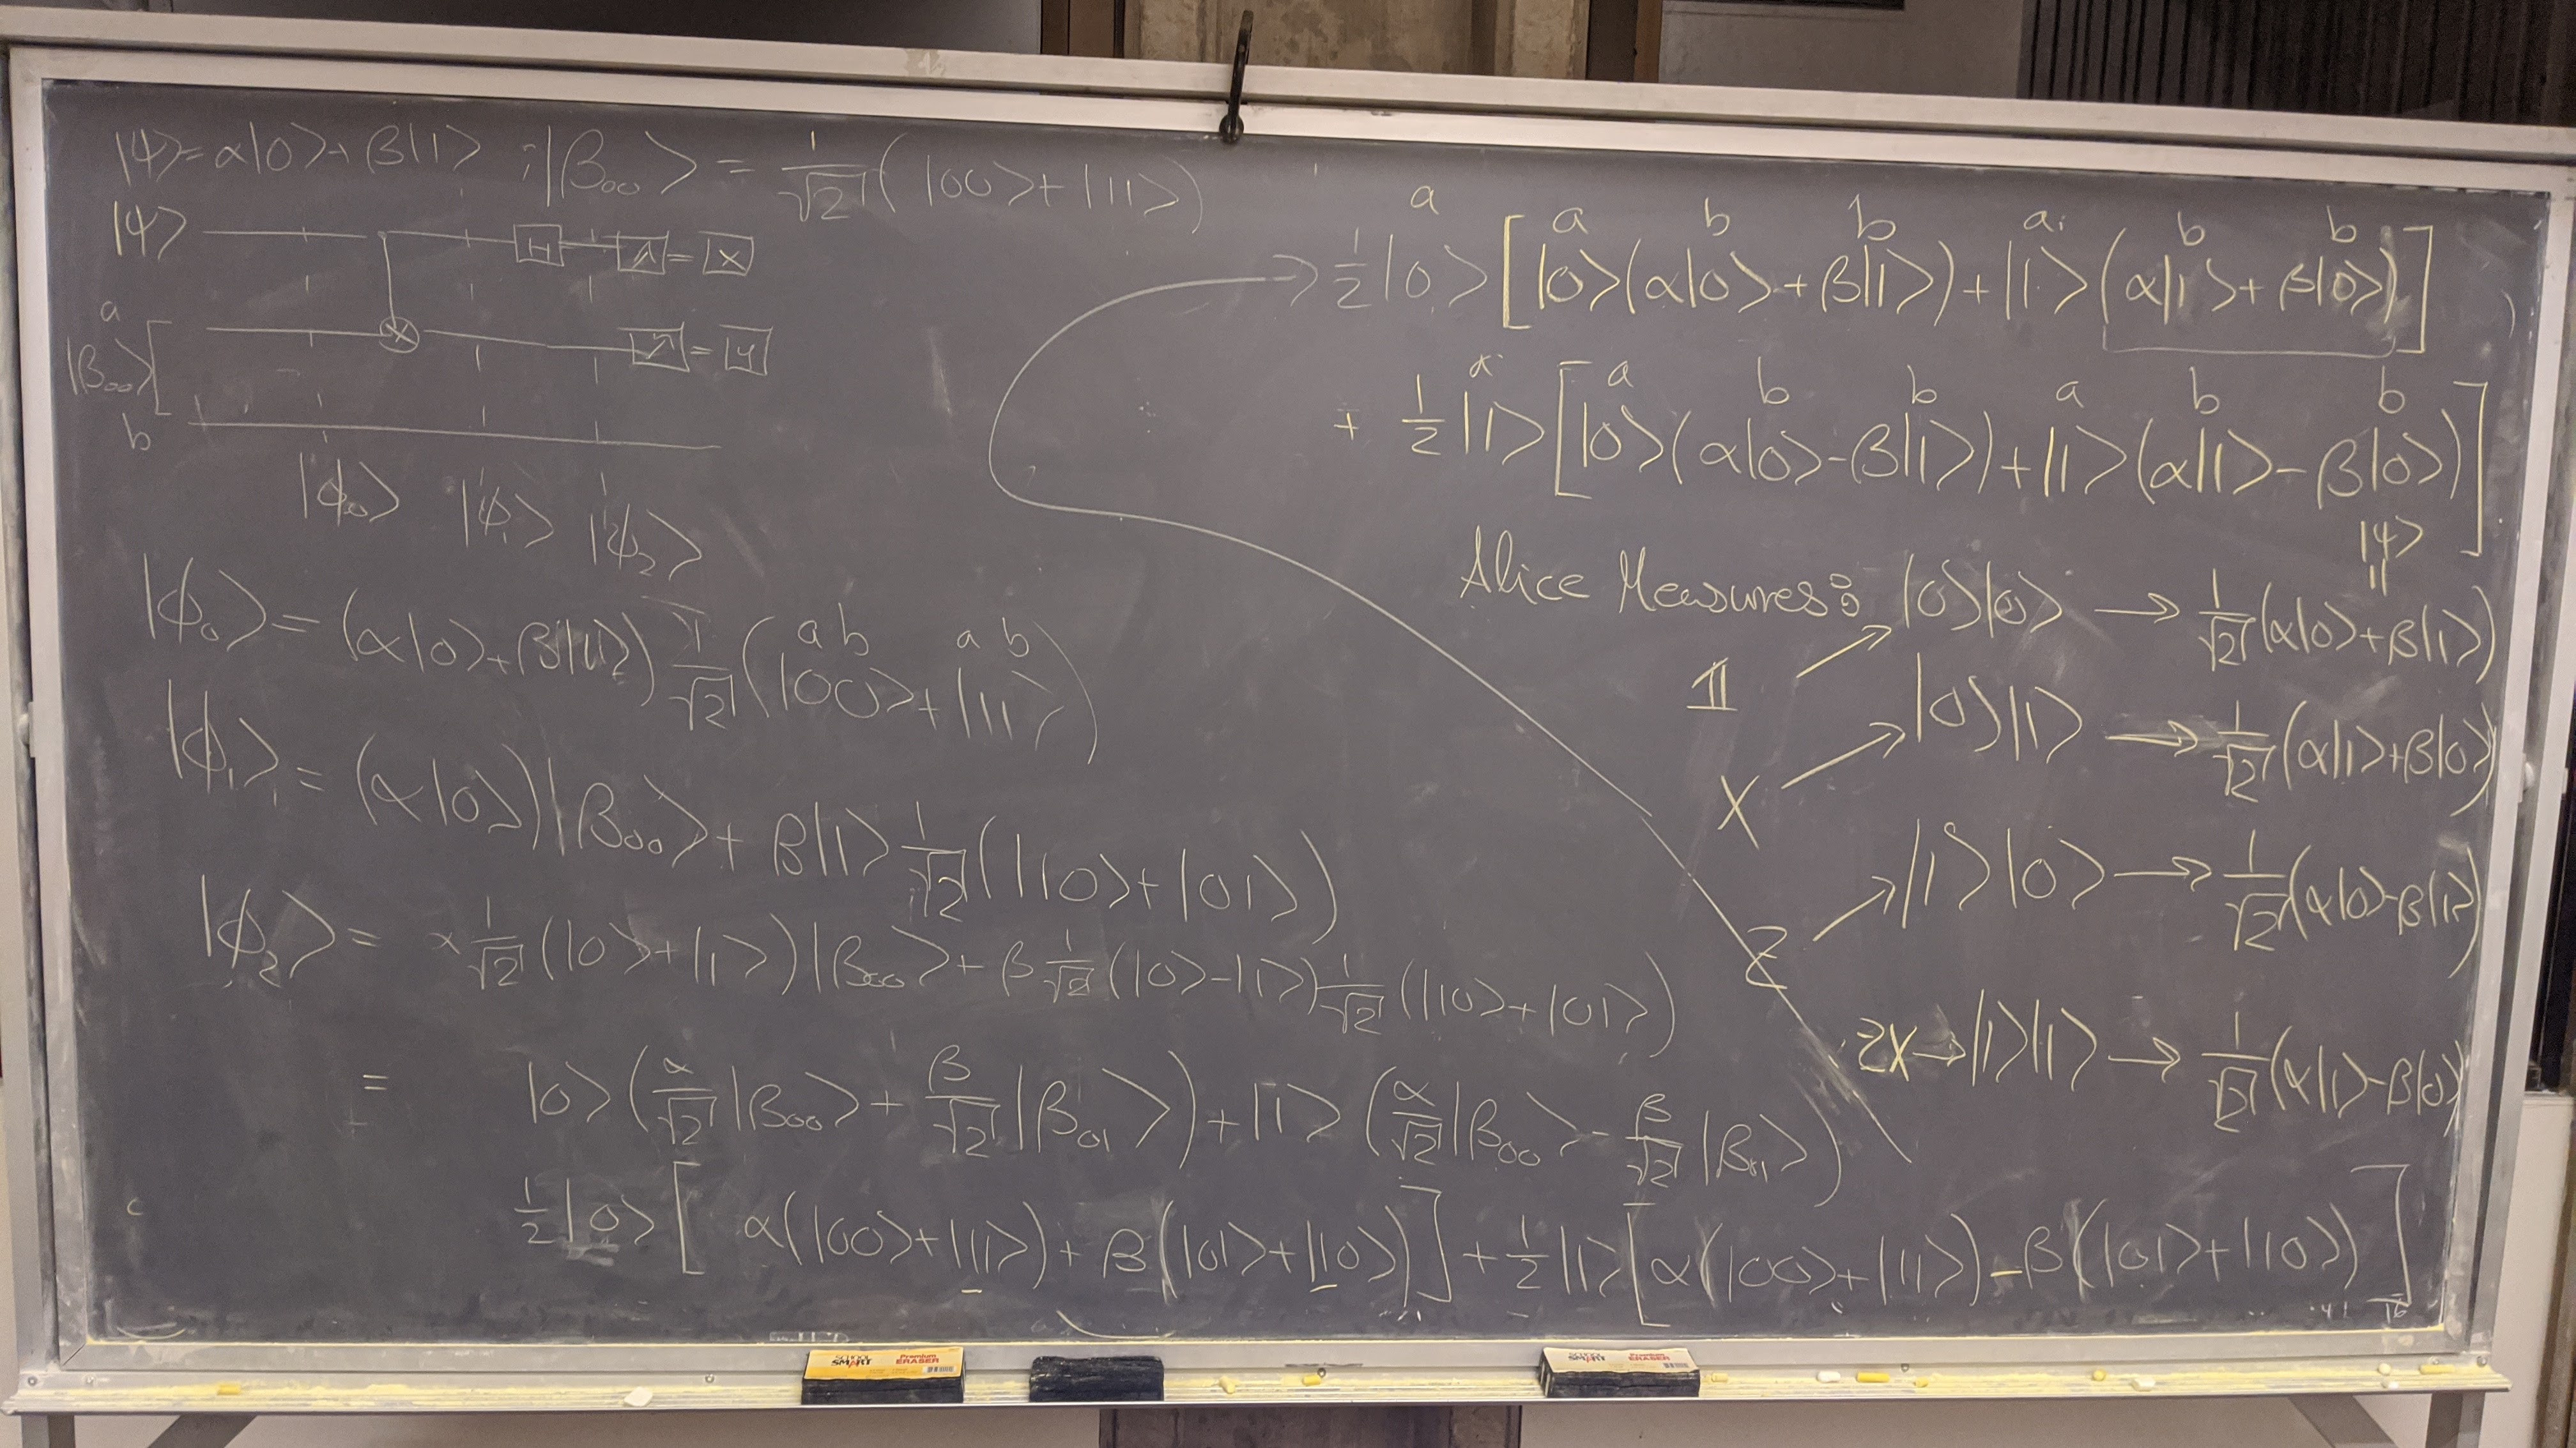 |ψ> = α|0> + β|1> ; |β₀₀> = 1/√2 (|00> + |11>)
|ψ> H = X
a
|β₀₀> = y
b
|ϕ₀> |ϕ₁> |ϕ₂>
|ϕ₀> = (α|0> + β|1>) 1/√2 (|00> + |11>)
a b a b
|ϕ₁> = (α|0>)|β₀₀> + β|1> 1/√2 (|10> + |01>)
|ϕ₂> = α 1/√2 (|0> + |1>)|β₀₀> + β 1/√2 (|0> - |1>) 1/√2 (|10> + |01>)
= |0> (α/√2 |β₀₀> + β/√2 |β₀₁>) + |1> (α/√2 |β₀₀> - β/√2 |β₀₁>)
1/2 |0> [α(|00> + |11>) + β(|01> + |10>)] + 1/2 |1> [α(|00> + |11>) - β(|01> + |10>)]
a a b b a b b
→ 1/2 |0> [|0>(α|0> + β|1>) + |1>(α|1> + β|0>)]
a a b b a b b
+ 1/2 |1> [|0>(α|0> - β|1>) + |1>(α|1> - β|0>)]
|ψ>
=
Alice Measures: |0>|0> → 1/√2 (α|0> + β|1>)
𝟙
|0>|1> → 1/√2 (α|1> + β|0>)
X
|1>|0> → 1/√2 (α|0> - β|1>)
Z
ZX → |1>|1> → 1/√2 (α|1> - β|0>)
SCHOOL SMART Premium ERASER
SCHOOL SMART Premium ERASER